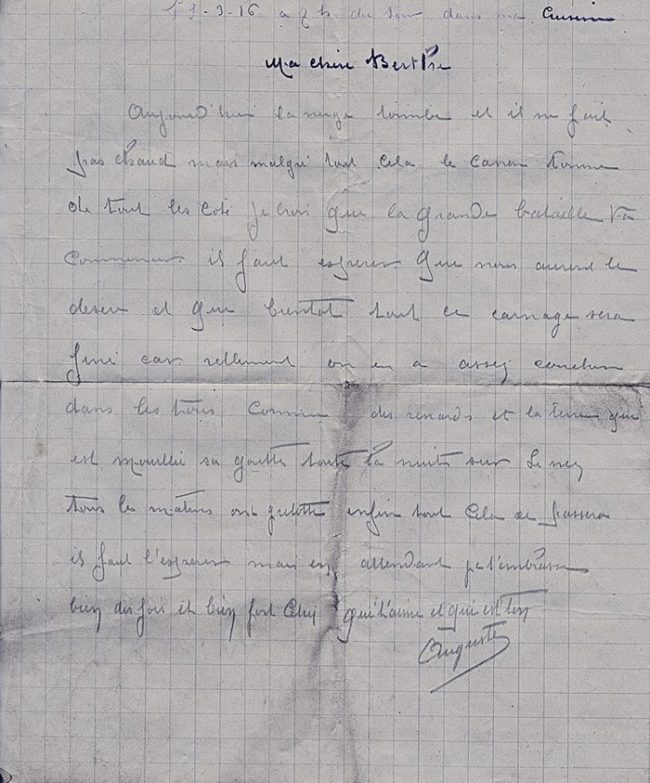 3-3-16 a 7 h. du soir dans ma
Ma chere Berthe
Aujourd'hui la neige tombe et il ne fait
pas chaud mais malgré tout cela le canon tonne
de tout les coté je croi que la grande bataille va
commencer il faut esperer que nous auront le
desus et que bientot tout ce carnage sera
fini car rellement on en a assez coucher
dans les trous comme des renards et la terre qui
est mouillé sa goutte toute la nuits sur le nez
tous les matins on grelotte enfin tout cela se passera
il faut l'esperer mais en attendant je t'embrasse
bien des fois et bien fort celui qui t'aime et qui est ton
Auguste